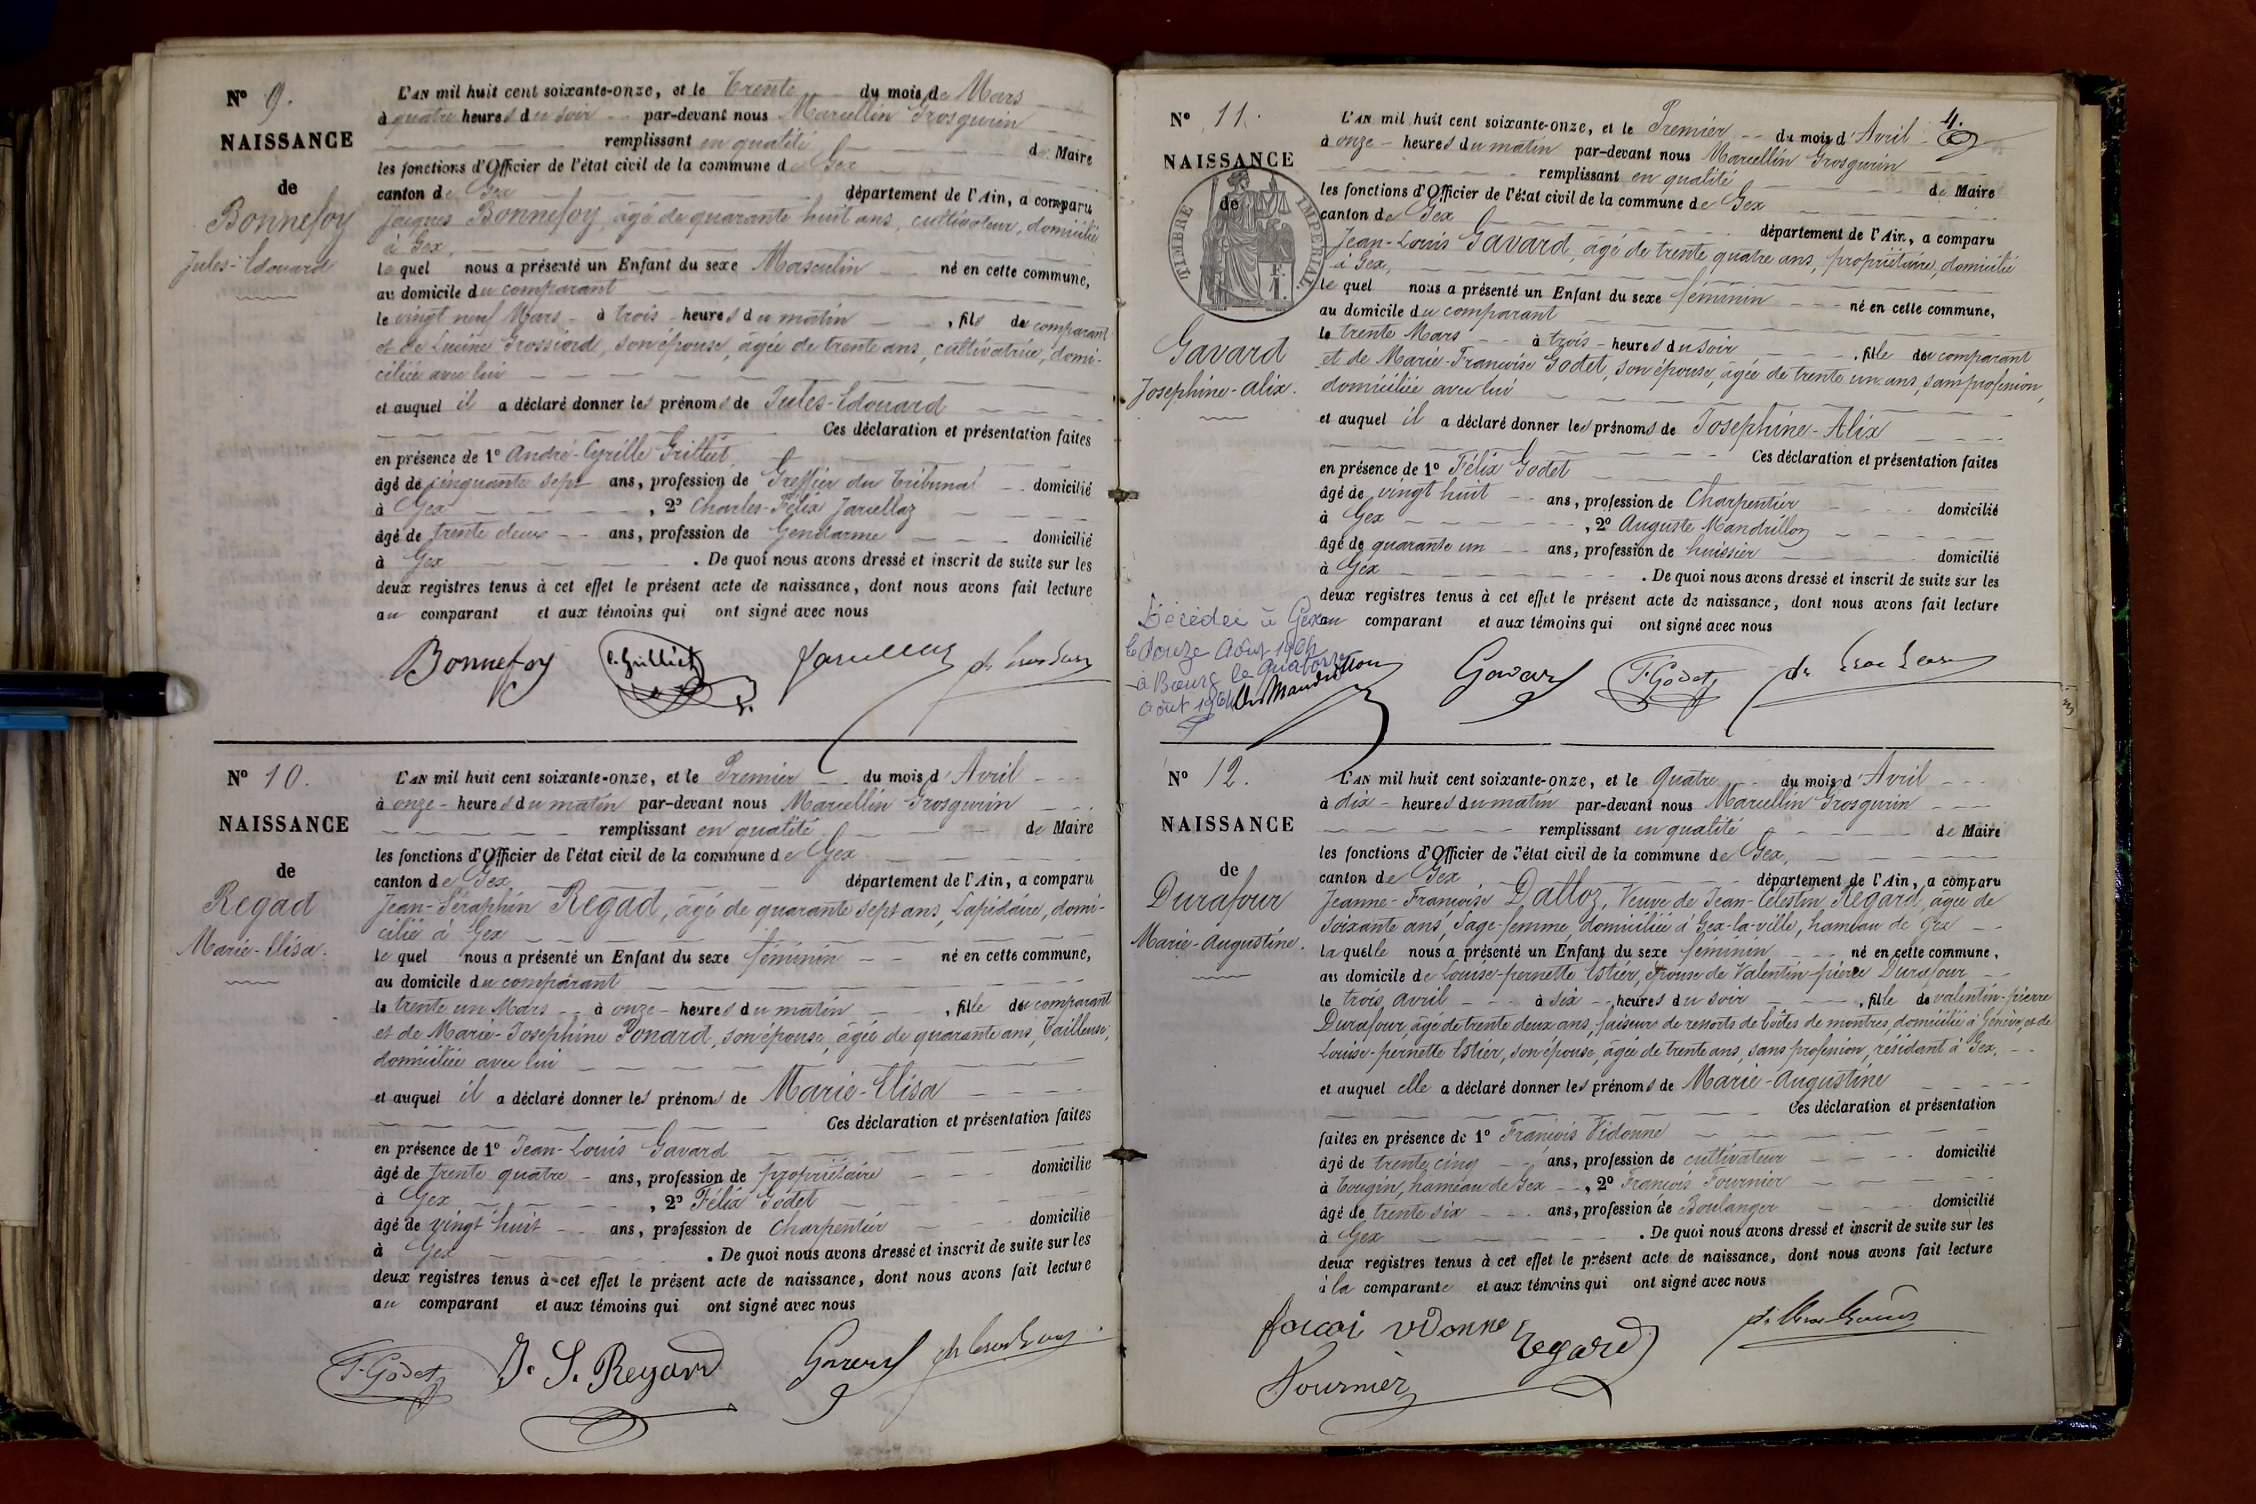 N° 9.
NAISSANCE
de
Bonnefoy
Jules-Edouard
L'AN mil huit cent soixante-onze, et le Trente du mois de Mars
à quatre heures du soir par-devant nous Marcellin Grosgurin
remplissant en qualité de Maire
les fonctions d'Officier de l'état civil de la commune de Gex
canton de Gex département de l'Ain, a comparu
Jacques Bonnefoy, âgé de quarante huit ans, cultivateur, domicilié
à Gex,
lequel nous a présenté un Enfant du sexe Masculin né en cette commune,
au domicile du comparant
le vingt neuf Mars à trois heures du matin, fils du comparant
et de Lucine Grossiord, son épouse, âgée de trente ans, cultivatrice, domi-
ciliée avec lui
et auquel il a déclaré donner les prénoms de Jules-Edouard
Ces déclaration et présentation faites
en présence de 1° André-Cyrille Grilliet
âgé de cinquante sept ans, profession de Greffier du Tribunal domicilié
à Gex, 2° Charles-Félix Jarcellaz
âgé de trente deux ans, profession de Gendarme domicilié
à Gex. De quoi nous avons dressé et inscrit de suite sur les
deux registres tenus à cet effet le présent acte de naissance, dont nous avons fait lecture
au comparant et aux témoins qui ont signé avec nous
Bonnefoy C. Grilliet
N° 10.
NAISSANCE
de
Regad
Marie-Elisa.
L'AN mil huit cent soixante-onze, et le Premier du mois d'Avril
à onze heures du matin par-devant nous Marcellin Grosgurin
remplissant en qualité de Maire
les fonctions d'Officier de l'état civil de la commune de Gex
canton de Gex département de l'Ain, a comparu
Jean-Séraphin Regad, âgé de quarante sept ans, Lapidaire, domi-
cilié à Gex
lequel nous a présenté un Enfant du sexe féminin né en cette commune,
au domicile du comparant
le trente un Mars à onze heures du matin, fille du comparant
et de Marie-Josephine Ponard, son épouse, âgée de quarante ans, Tailleuse,
domiciliée avec lui
et auquel il a déclaré donner les prénoms de Marie-Elisa
Ces déclaration et présentation faites
en présence de 1° Jean-Louis Gavard
âgé de trente quatre ans, profession de propriétaire domicilié
à Gex, 2° Félix Godet
âgé de vingt huit ans, profession de Charpentier domicilié
à Gex. De quoi nous avons dressé et inscrit de suite sur les
deux registres tenus à cet effet le présent acte de naissance, dont nous avons fait lecture
au comparant et aux témoins qui ont signé avec nous
F. Godet J. S. Regad Gavard
4.
N° 11.
NAISSANCE
de
TIMBRE IMPERIAL
1 F.
Gavard
Josephine-Alix.
L'AN mil huit cent soixante-onze, et le Premier du mois d'Avril
à onze heures du matin par-devant nous Marcellin Grosgurin
remplissant en qualité de Maire
les fonctions d'Officier de l'état civil de la commune de Gex
canton de Gex département de l'Ain, a comparu
Jean-Louis Gavard, âgé de trente quatre ans, propriétaire, domicilié
à Gex,
lequel nous a présenté un Enfant du sexe féminin né en cette commune,
au domicile du comparant
le trente Mars à trois heures du soir, fille du comparant
et de Marie-Françoise Godet, son épouse, âgée de trente un ans, sans profession,
domiciliée avec lui
et auquel il a déclaré donner les prénoms de Josephine-Alix
Ces déclaration et présentation faites
en présence de 1° Félix Godet
âgé de vingt huit ans, profession de Charpentier domicilié
à Gex, 2° Auguste Mandrillon
âgé de quarante un ans, profession de huissier domicilié
à Gex. De quoi nous avons dressé et inscrit de suite sur les
deux registres tenus à cet effet le présent acte de naissance, dont nous avons fait lecture
au comparant et aux témoins qui ont signé avec nous
Décédée à Gex
le douze Août 1964
à Bourg le quatorze
août 1964
Mandrillon Gavard F. Godet
N° 12.
NAISSANCE
de
Durafour
Marie-Augustine.
L'AN mil huit cent soixante-onze, et le quatre du mois d'Avril
à dix heures du matin par-devant nous Marcellin Grosgurin
remplissant en qualité de Maire
les fonctions d'Officier de l'état civil de la commune de Gex,
canton de Gex département de l'Ain, a comparu
Jeanne-Françoise Dalloz, Veuve de Jean-Célestin Regard, âgée de
soixante ans, Sage-femme, domiciliée à Gex-la-ville, hameau de Gex
laquelle nous a présenté un Enfant du sexe féminin né en cette commune,
au domicile de Louise-pernette Estier, épouse de Valentin-pierre Durafour
le trois avril à dix heures du soir, fille de valentin-pierre
Durafour, âgé de trente deux ans, faiseur de ressorts de boîtes de montres, domicilié à Genève, et de
Louise-pernette Estier, son épouse, âgée de trente ans, sans profession, résidant à Gex,
et auquel elle a déclaré donner les prénoms de Marie-Augustine
Ces déclaration et présentation
faites en présence de 1° François Vidonne
âgé de trente cinq ans, profession de cultivateur domicilié
à Tougin, hameau de Gex, 2° François Fournier
âgé de trente six ans, profession de Boulanger domicilié
à Gex. De quoi nous avons dressé et inscrit de suite sur les
deux registres tenus à cet effet le présent acte de naissance, dont nous avons fait lecture
à la comparante et aux témoins qui ont signé avec nous
vidonne Regard
Fournier